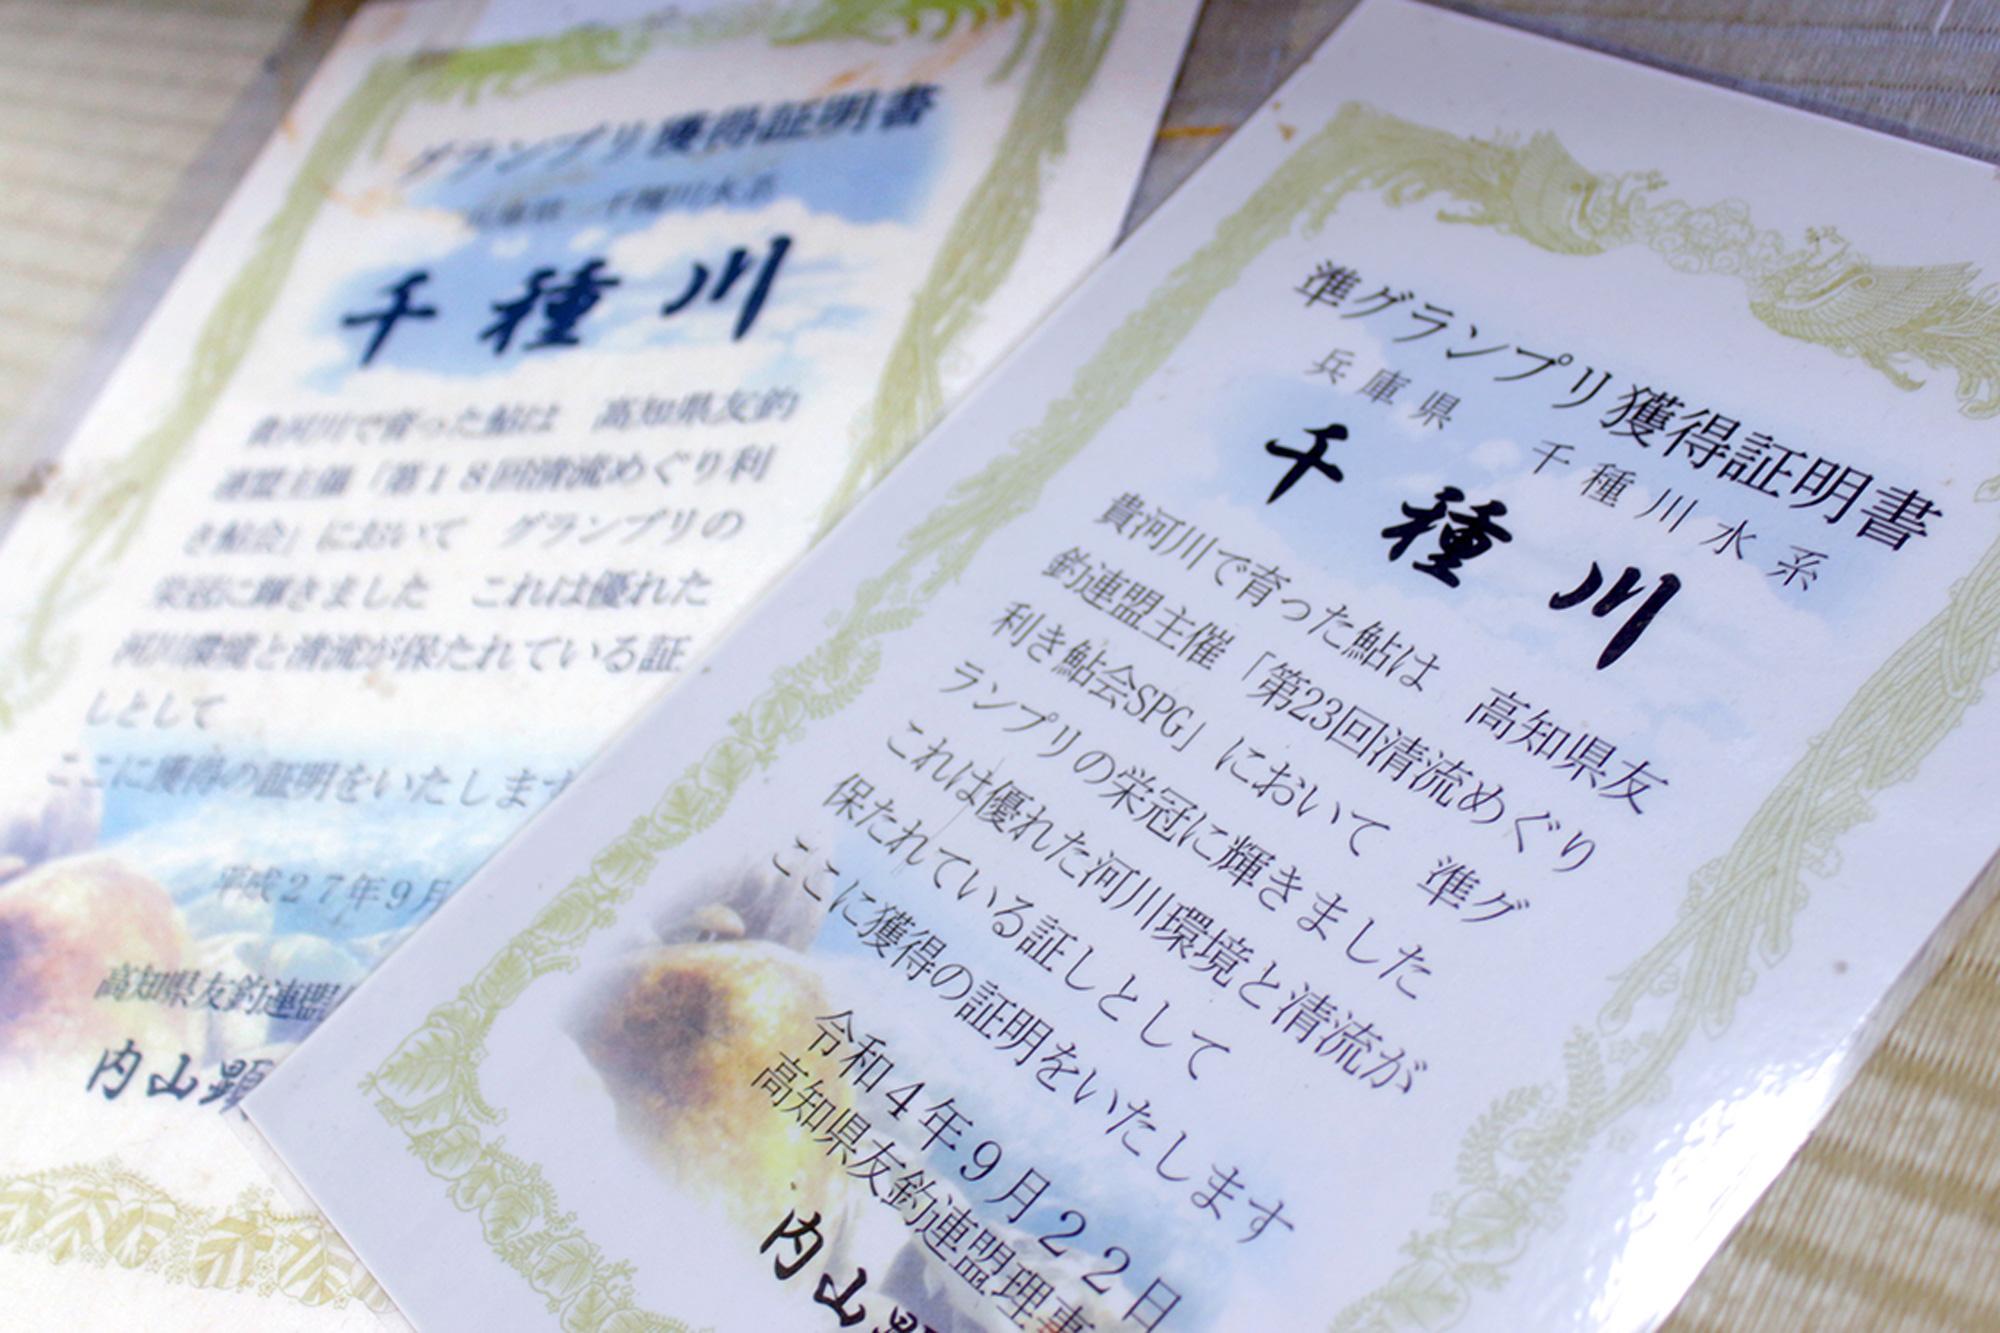 グランプリ獲得証明書
兵庫県 千種川水系
千種川
貴河川で育った鮎は 高知県友釣
連盟主催「第18回清流めぐり利
き鮎会」において グランプリの
栄冠に輝きました これは優れた
河川環境と清流が保たれている証
しとして
ここに獲得の証明をいたします
平成27年9月
高知県友釣連盟
内山顕
準グランプリ獲得証明書
兵庫県 千種川水系
千種川
貴河川で育った鮎は 高知県友
釣連盟主催「第23回清流めぐり
利き鮎会SPG」において 準グ
ランプリの栄冠に輝きました
これは優れた河川環境と清流が
保たれている証しとして
ここに獲得の証明をいたします
令和4年9月22日
高知県友釣連盟理事
内山顕